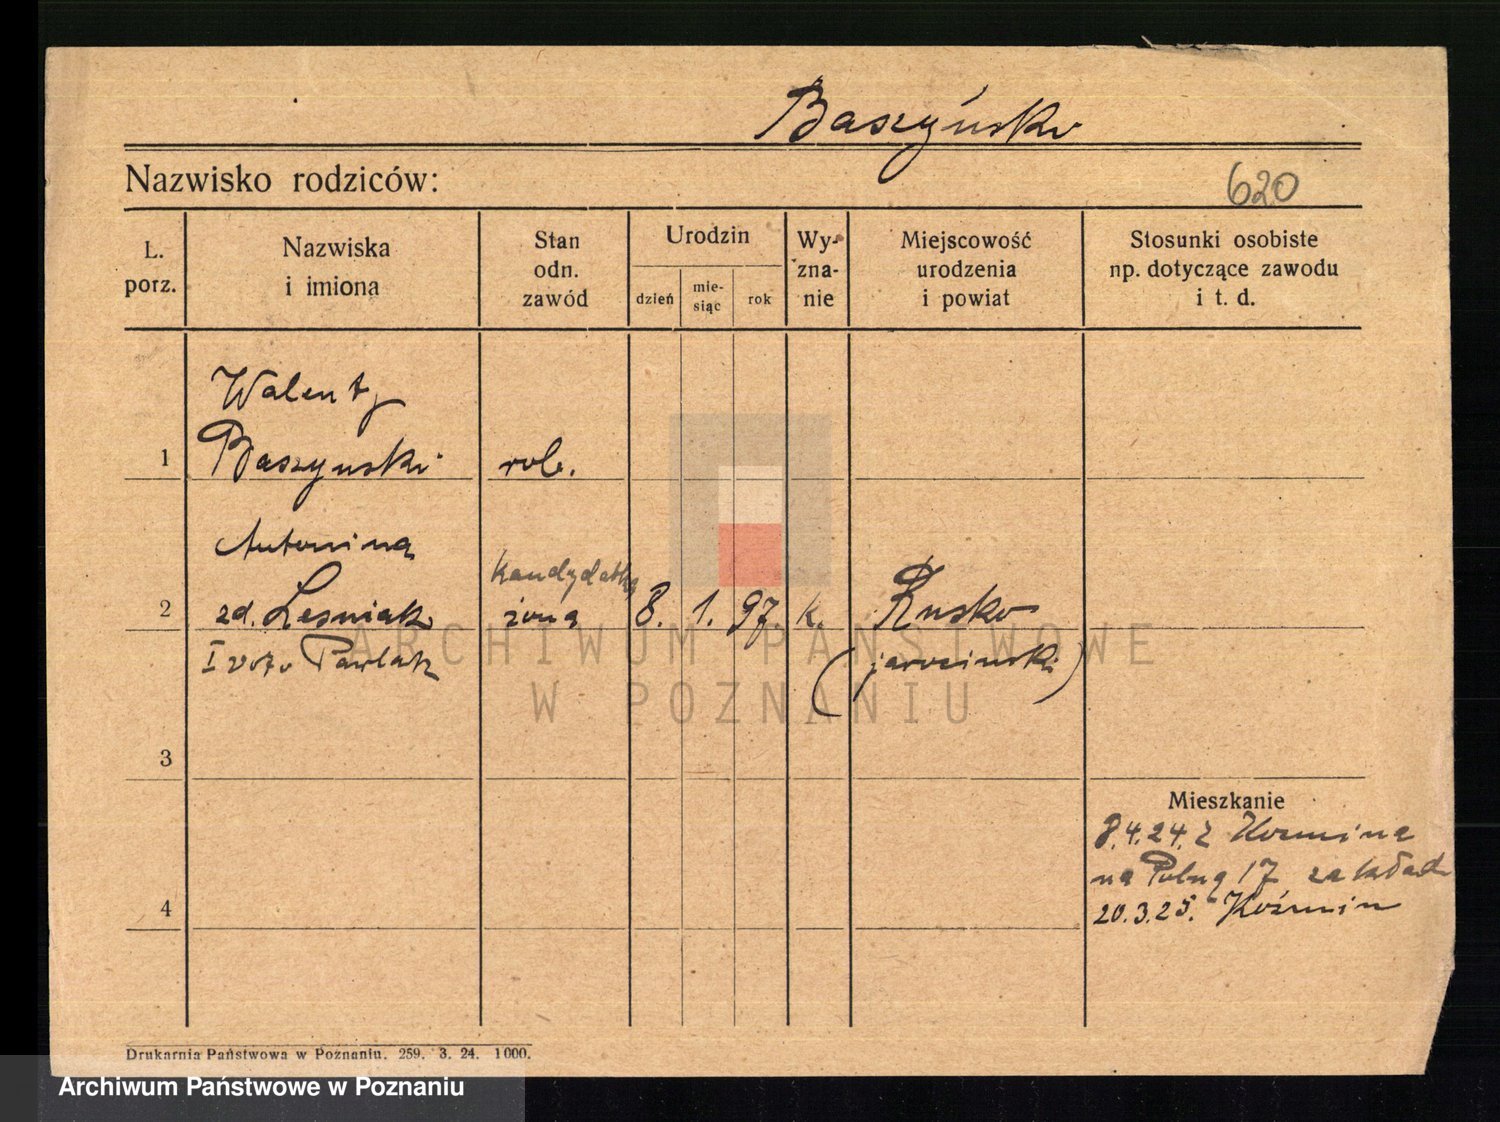 Baszyńska
Nazwisko rodziców:
620
L. porz.
Nazwiska i imiona
Stan odn. zawód
Urodzin
dzień
mie-siąc
rok
Wy-zna-nie
Miejscowość urodzenia i powiat
Stosunki osobiste np. dotyczące zawodu i t. d.
Walenty
1 Baszynski rob.
Antonina
kandydatka
2 zd. Lesniak żona 8. 1. 97. k. Rusko
I voto Pawlak (jarocinski)
3
Mieszkanie
8.4.24. z Kozmina
na Polną 17 zakład
4
20.3.25. Koźmin
Drukarnia Państwowa w Poznaniu. 259. 3. 24. 1000.
ARCHIWUM PAŃSTWOWE
W POZNANIU
Archiwum Państwowe w Poznaniu